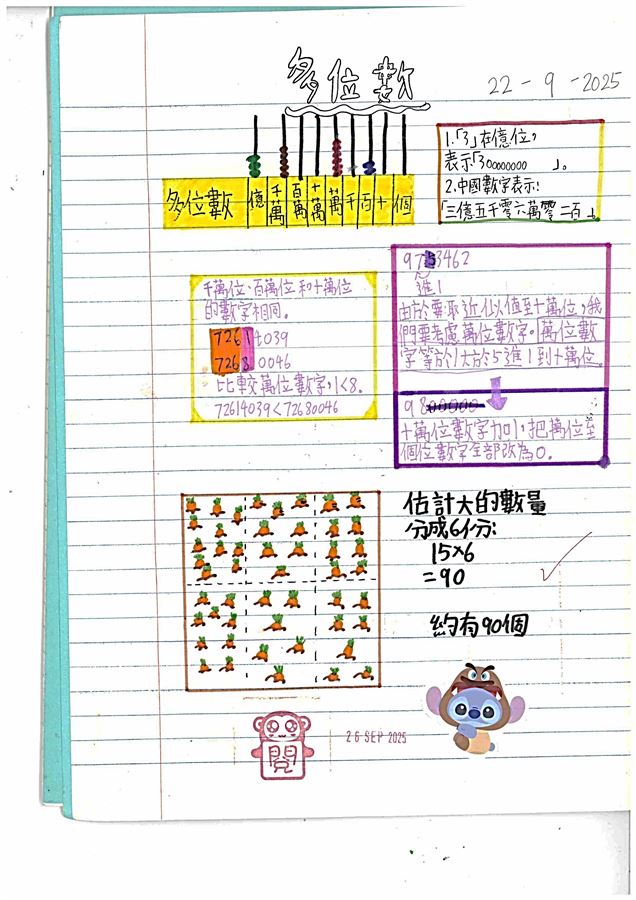 多位數
22-9-2025
多位數 億 千萬 百萬 十萬 萬 千 百 十 個
1.「3」在億位,
表示「300000000 」。
2.中國數字表示:
「三億五千零六萬零二百」
千萬位、百萬位和十萬位
的數字相同。
72614039
72680046
比較萬位數字,1<8。
72614039<72680046
3462
進1
由於要取近似值至十萬位,我
們要考慮萬位數字。萬位數
字等於/大於5進1到十萬位.
98
十萬位數字加1,把萬位至
個位數字全部改為0。
估計大的數量
分成6份:
15×6
=90
約有90個
閱
26 SEP 2025